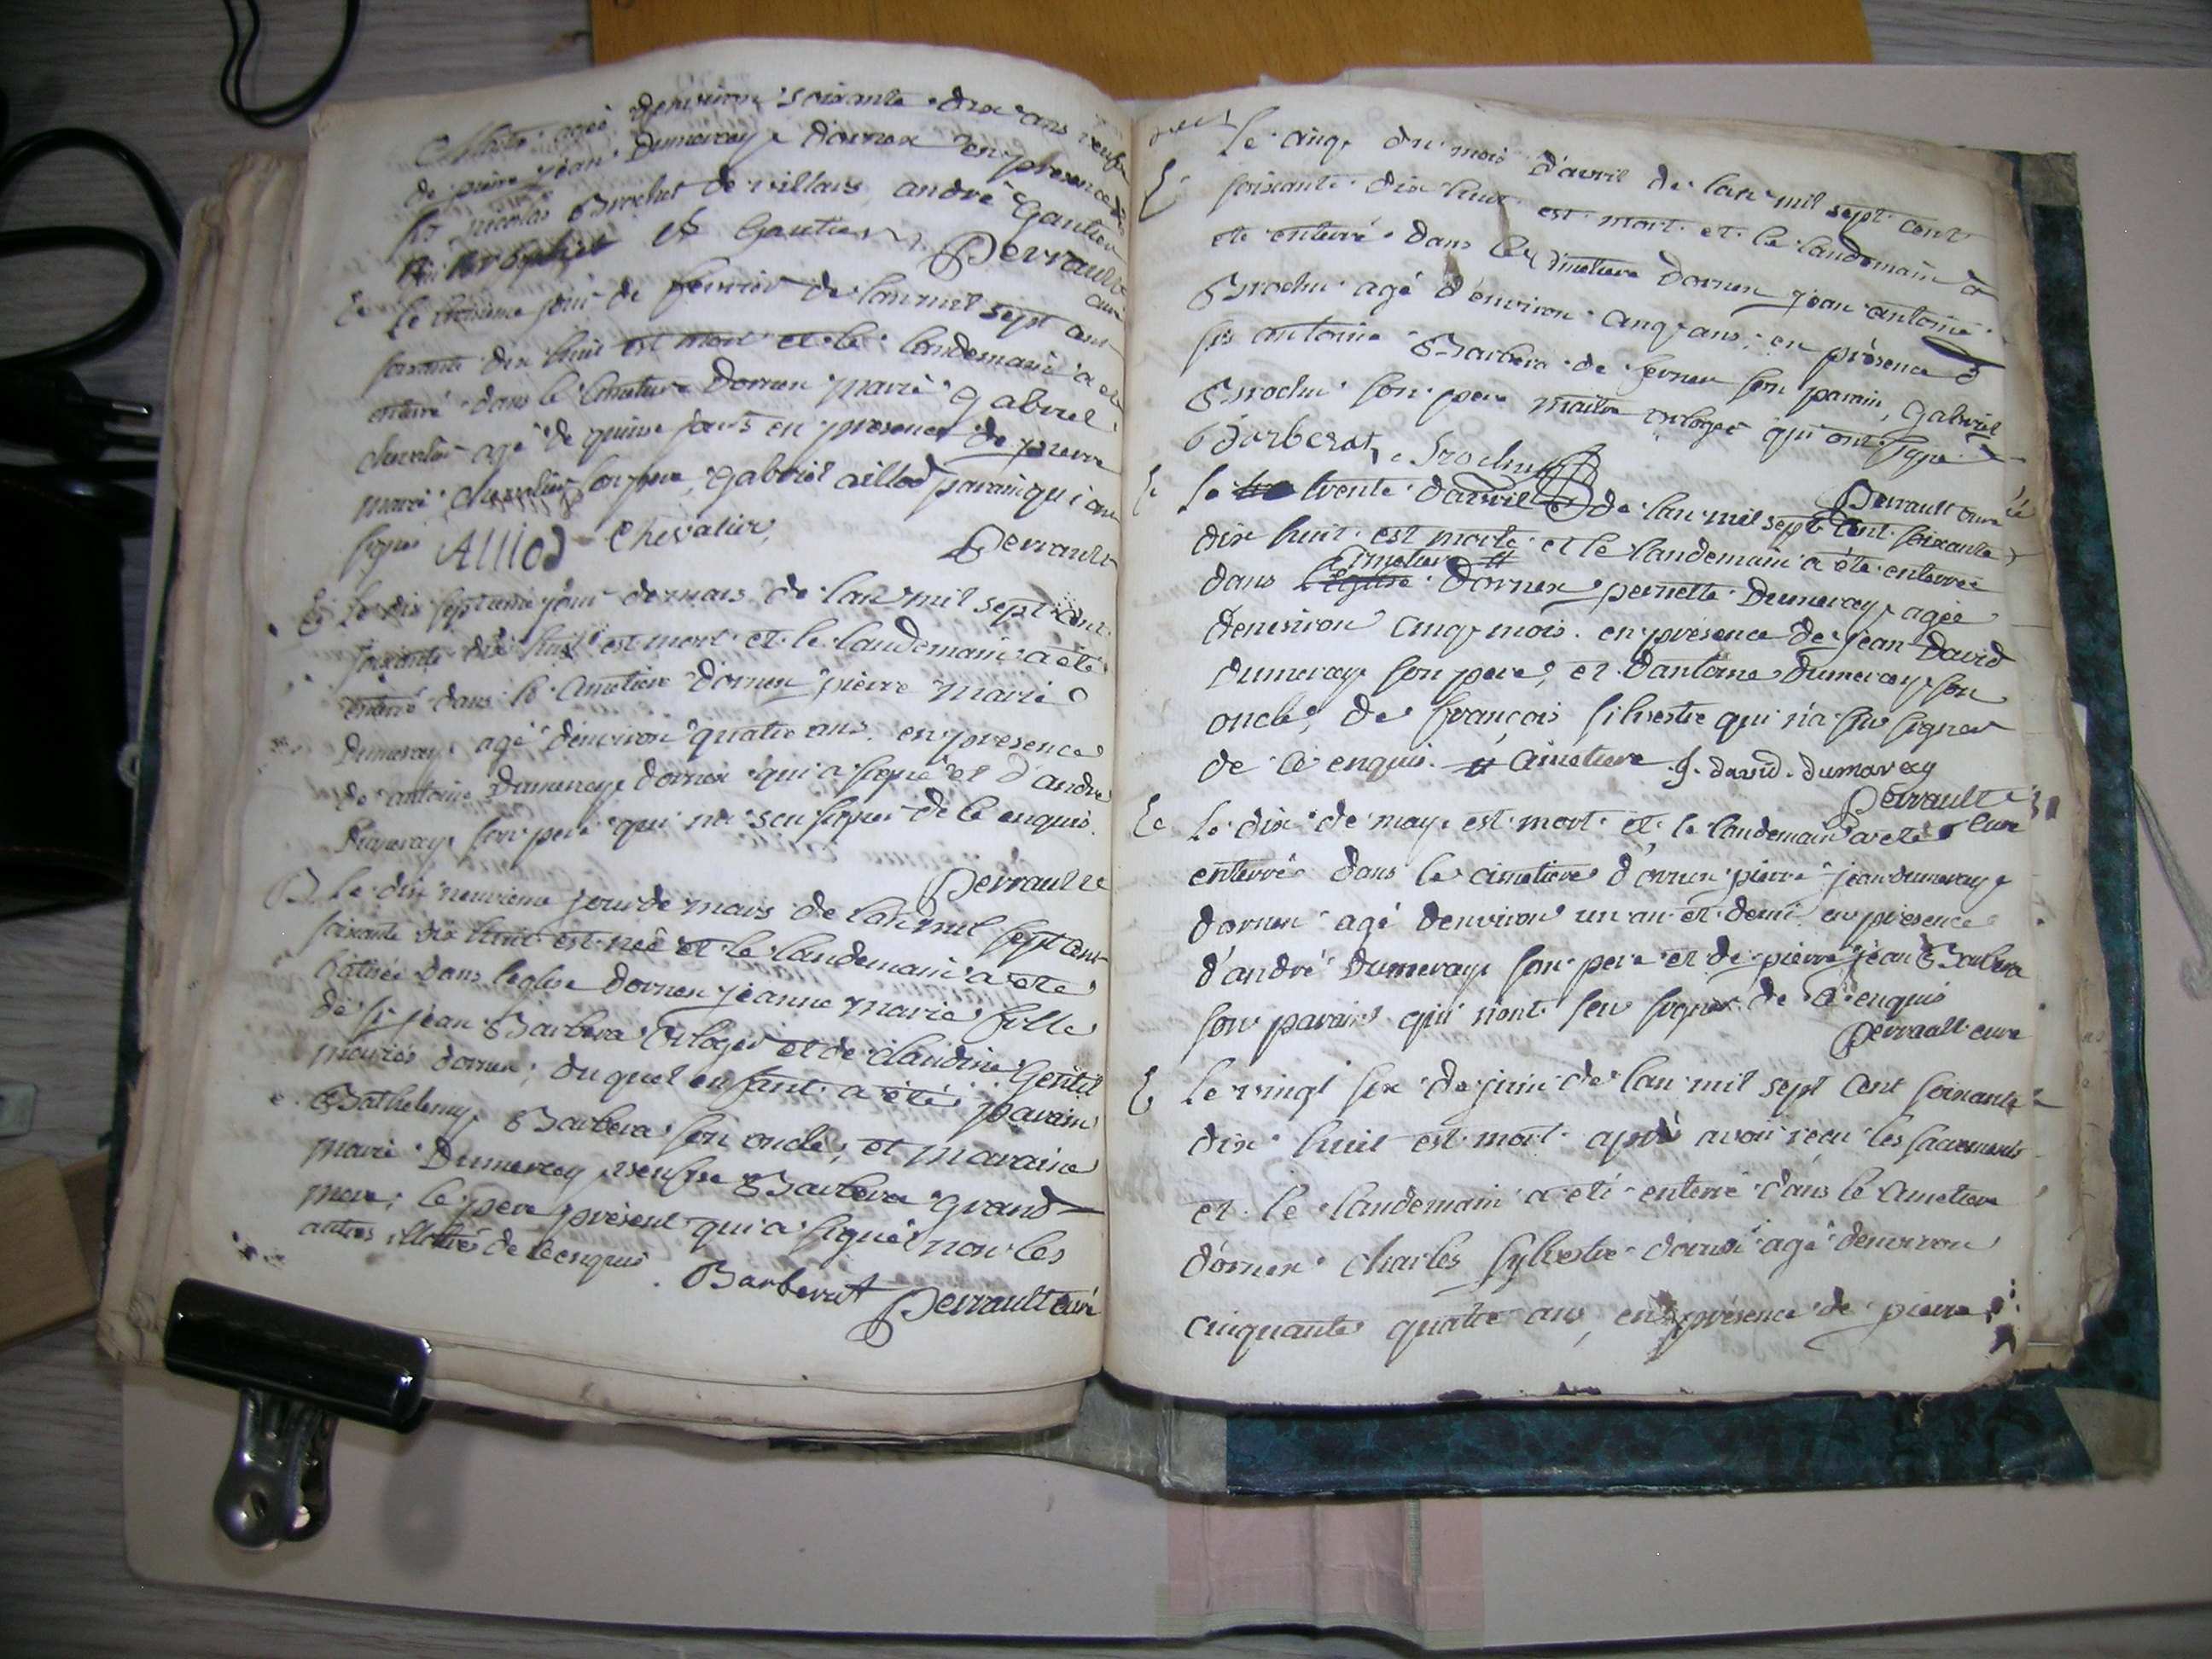 agé denviron soixante dix ans veufve
de pierre jean Dumeray dornex en presence de
Srs nicolas Brochut de villars, andré Gautier
Gautier Perrault
curé
Le troisieme jour de fevrier de lan mil sept cent
soixante dix huit est mort et le landemain a eté
enterré dans le Cimetiere Dornex marie gabriel
chevalier agé de quinse jours en presence de pierre
marie chevalier son pere, gabriel aillod parain qui ont
signé Alliod Chevalier, Perrault
E Le dix septieme jour de mars de lan mil sept cent
soixante dix huit est mort et le landemain a eté
enterré dans le Cimetiere Dornex pierre marie
Dumeray agé denviron quatre ans en presence
de antoine Dumeray dornex qui a signé et d'andre
Dumeray son pere qui na seu signer de ce enquis.
Perrault
B Le dix neuvieme jour de mars de lan mil sept cent
soixante dix huit est née et le landemain a eté
batisée dans leglise dornex jeanne marie fille
de sr jean Barbera orloger et de claudine Gentil
mariés dornex, du quel enfant a été parain
Bathelemy Barbera son oncle, et maraine
marie Dumeray veufve Barbera grand
mere, le pere présent qui a signé non les
autres illettrés de ce enquis
Barberat Perrault curé
Le cinq du mois d'avril de lan mil sept cent
soixante dix huit est mort et le landemain a
ete enterré dans le Cimetiere Dornex jean antoine
Brochu agé d'environ cinq ans, en présence d
Srs antoine Barbera de fernex son parain, gabriel
Brochu son pere maitre orloger qui ont signé
Barberat, Brochu
Perrault curé
Le trente d'avril de lan mil sept cent soixante
dix huit est morte et le landemain a été enterrée
cimetiere #
dans l'eglise Dornex pernette Dumeray agée
denviron cinq mois en présence de jean David
Dumeray son pere, et Dantoine Dumeray son
oncle, de françois silvestre qui n'a seu signer
de ce enquis. # cimetiere J. david. dumaray
Perrault
curé
Le dix de may est mort et le landemain a eté
enterré dans le cimetiere d'ornex pierre jean dumeray
dornex agé denviron un an et demi en présence
d'andré Dumeray son pere et de pierre jean Barbera
son parain qui n'ont seu signer de ce enquis
Perrault curé
E Le vingt six de juin de lan mil sept cent soixante
dix huit est mort aprè avoir recu les sacrements
et le landemain a eté enterré dans le Cimetiere
d'ornex charles sylvestre dornex agé denviron
cinquante quatre ans, en présence de pierre